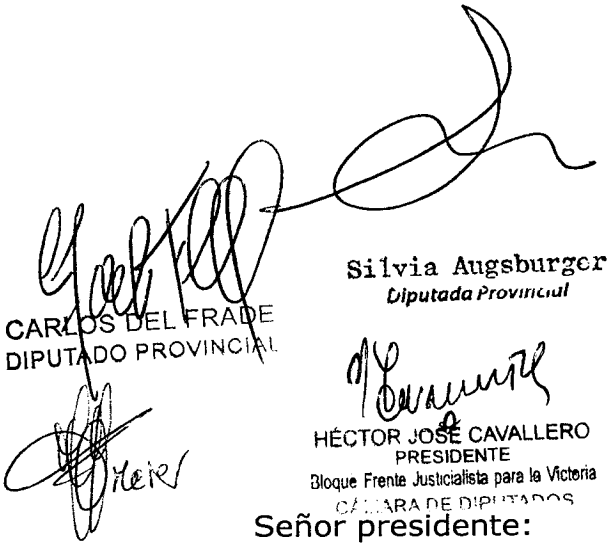 Silvia Augsburger
Diputada Provincial
CARLOS DEL FRADE
DIPUTADO PROVINCIAL
HÉCTOR JOSÉ CAVALLERO
PRESIDENTE
Bloque Frente Justicialista para la Victoria
CÁMARA DE DIPUTADOS
Señor presidente: